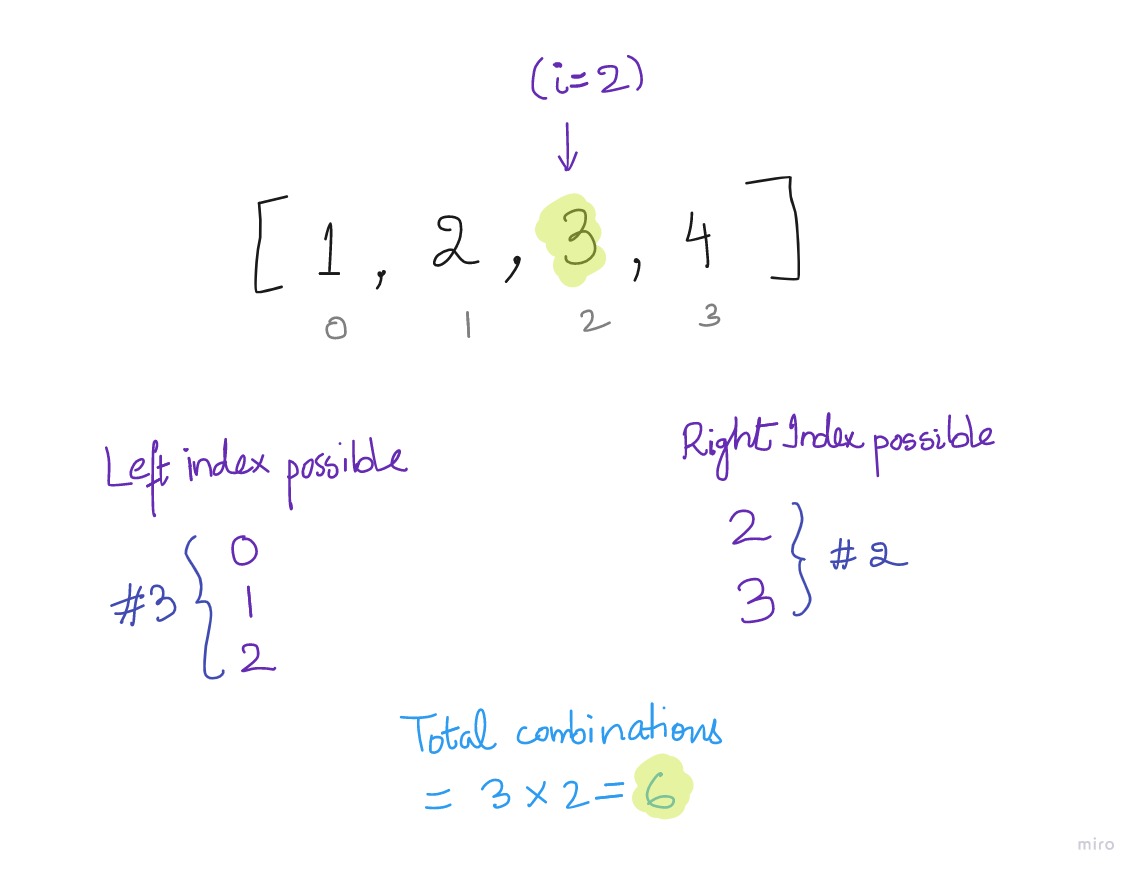 (i=2)
↓
[ 1 , 2 , 3 , 4 ]
0 1 2 3
Left index possible
#3 { 0
1
2
Right Index possible
2 } #2
3
Total combinations
= 3 × 2 = 6
miro